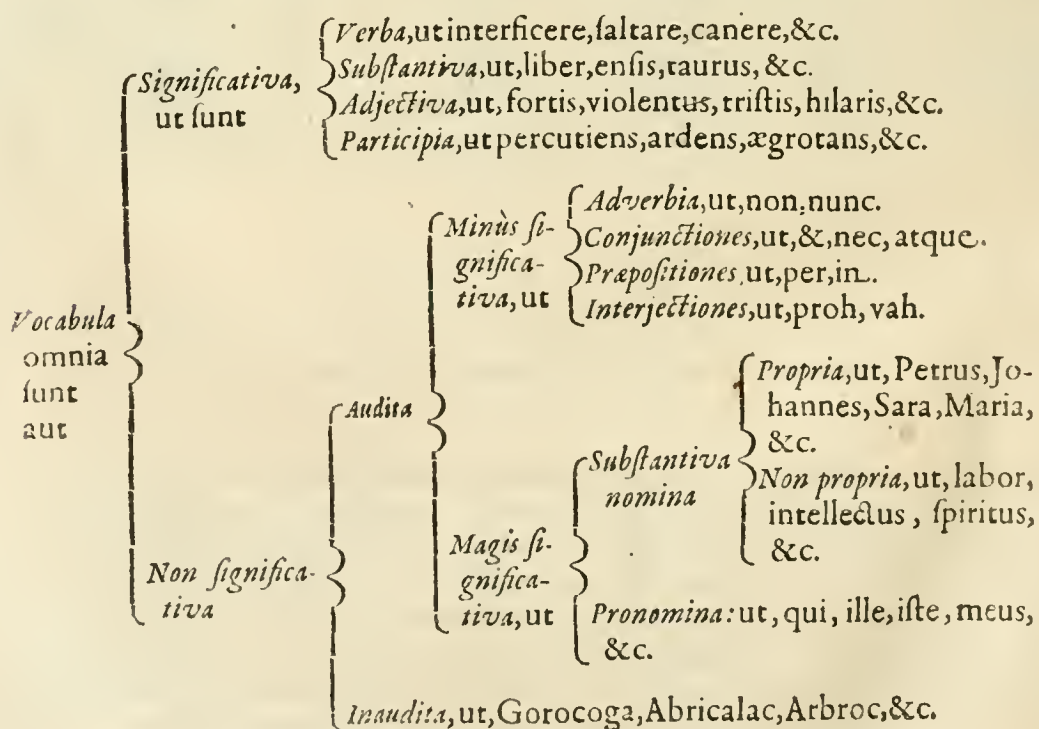 Verba,ut interficere,ſaltare,canere,&c.
Significativa, ut ſunt
Subſtantiva,ut,liber,enſis,taurus,&c.
Adjectiva,ut,fortis,violentus,triſtis,hilaris,&c.
Participia,ut percutiens,ardens,ægrotans,&c.
Vocabula
omnia
ſunt
aut
Non ſignifica-
tiva
Audita
Minùs ſi-
gnifica-
tiva,ut
Adverbia,ut,non,nunc.
Conjunctiones,ut,&,nec,atque.
Præpoſitiones,ut,per,in.
Interjectiones,ut,proh,vah.
Magis ſi-
gnifica-
tiva,ut
Subſtantiva
nomina
Propria,ut,Petrus,Jo-
hannes,Sara,Maria,
&c.
Non propria,ut,labor,
intellectus,ſpiritus,
&c.
Pronomina:ut,qui,ille,iſte,meus,
&c.
Inaudita,ut,Gorocoga,Abricalac,Arbroc,&c.